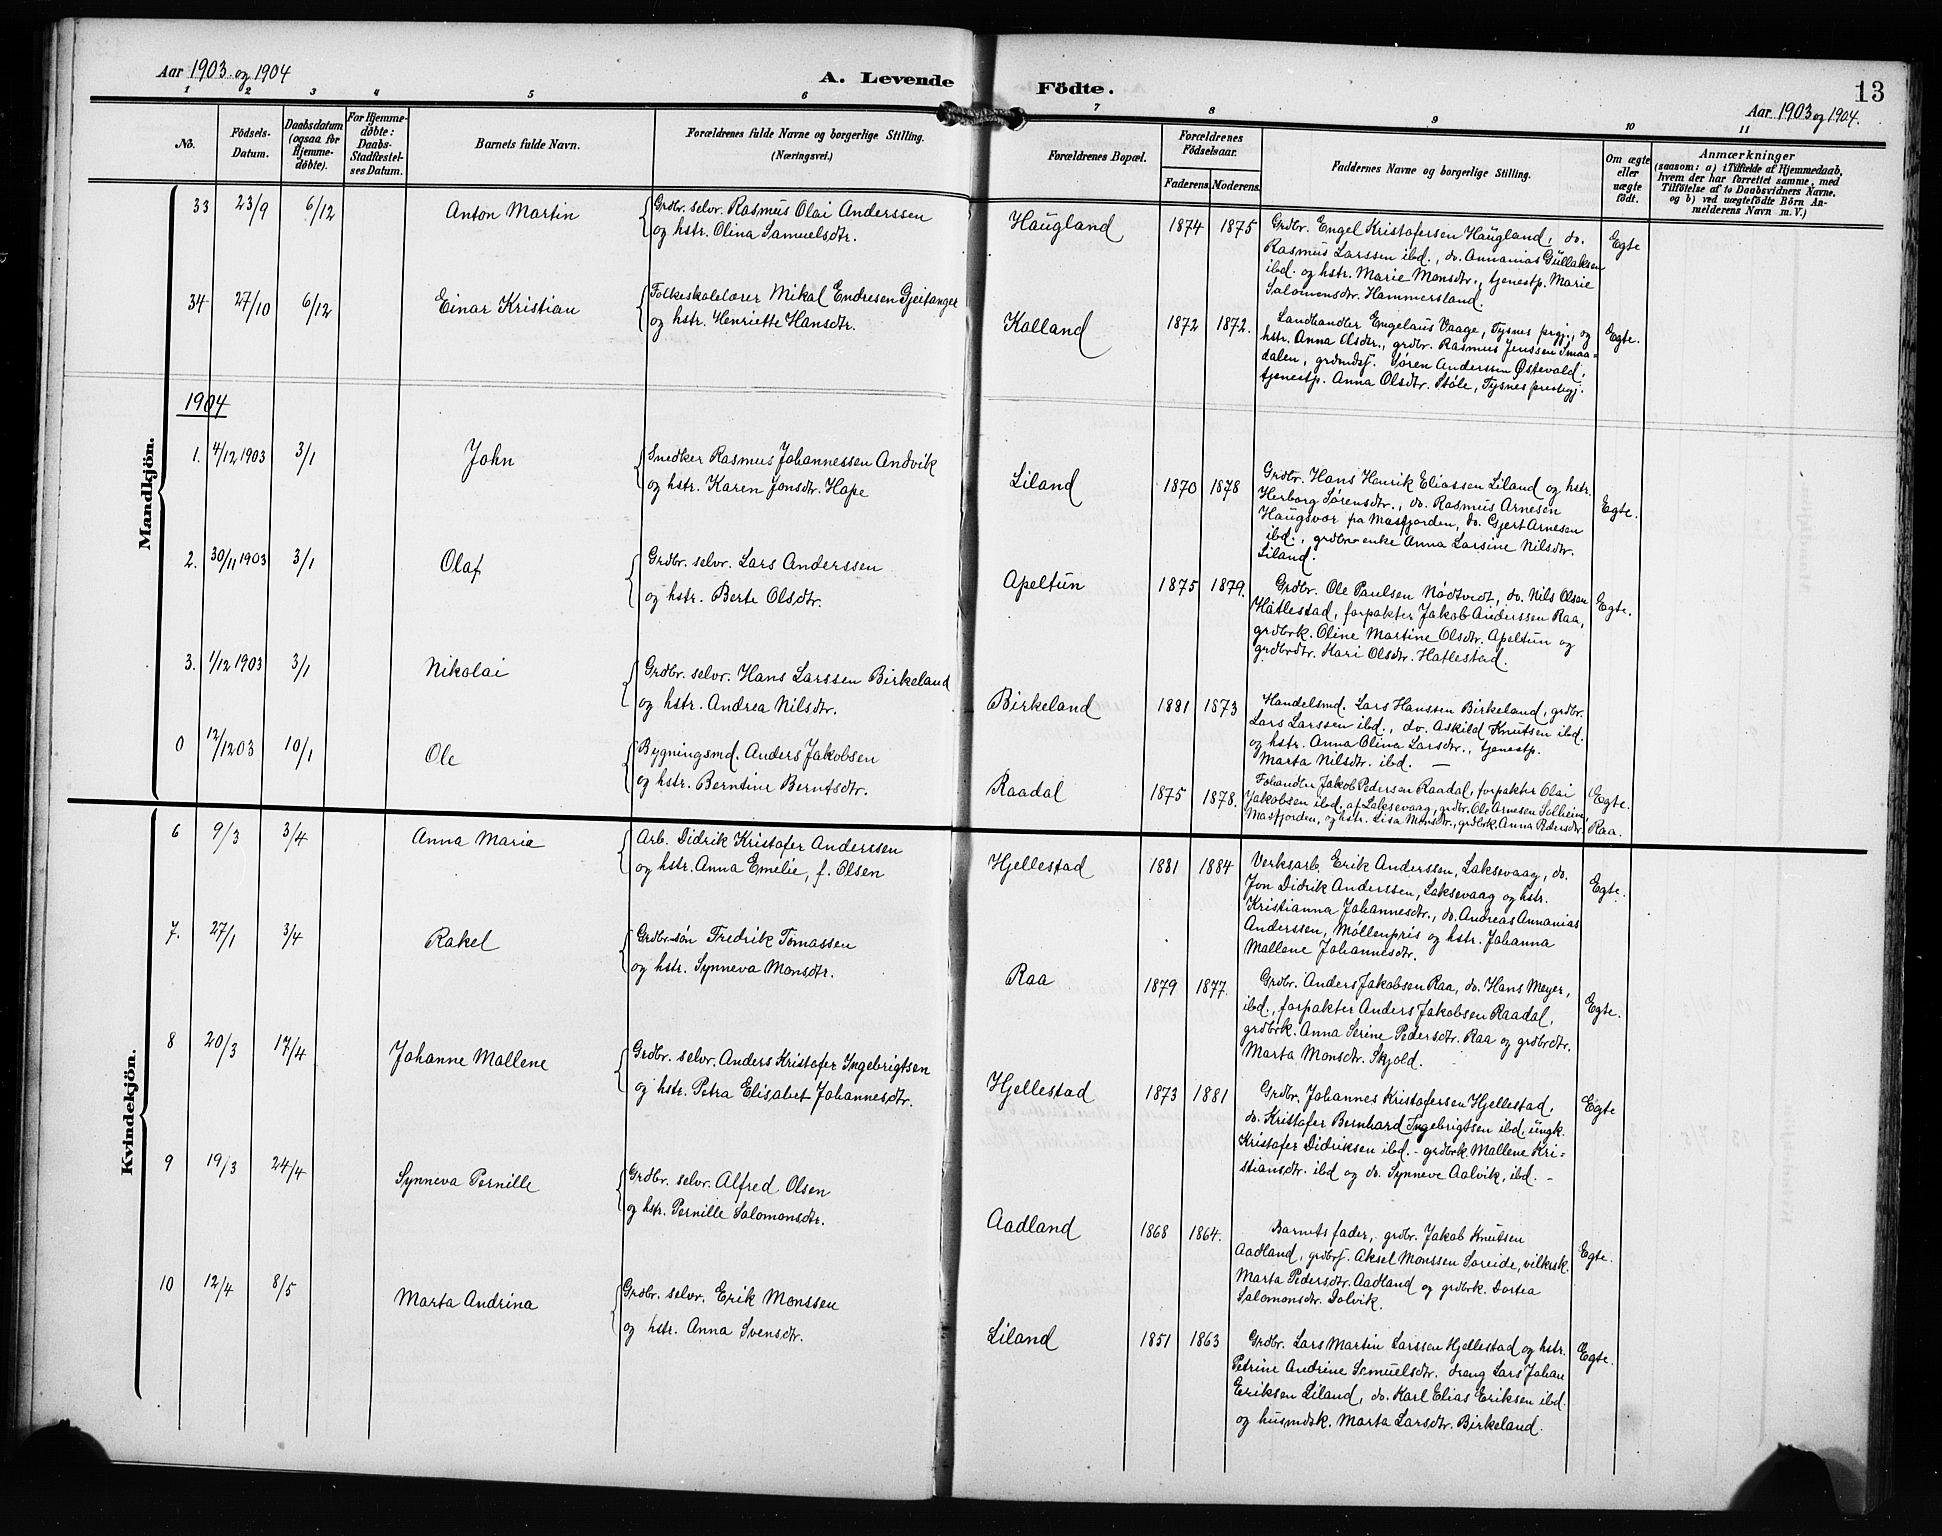 Aar 1903 og 1904
A. Levende
Födte.
13
Aar 1903 og 1904.
1 2 3 4 5 6
7 8 9 10 11
No.
Födsels-
Datum.
Daabsdatum
(ogsaa for
Hjemme-
döbte).
For Hjemme-
døbte:
Daabs-
Stadfæstel-
ses Datum.
Barnets fulde Navn.
Forældrenes fulde Navne og borgerlige Stilling.
(Næringsvei.)
Forældrenes Bopæl.
Forældrenes
Födselsaar.
Faderens. Moderens.
Faddernes Navne og borgerlige Stilling.
Om ægte
eller
uægte
født.
Anmærkninger
(saasom: a) i Tilfælde af Hjemmedaab,
hvem der har forrettet samme, med
Tilföielse af to Daabsvidners Navne,
og b) ved uægtefödte Börn An-
melderens Navn m. V.)
Mandkjön.
33 23/9 6/12 Anton Martin
Grdbr. selv. Rasmus Olai Anderssen
og hstr. Olina Samuelsdtr.
Haugland 1874 1875
Grdbr. Engel Kristofersen Haugland, do.
Rasmus Larssen ibd., do. Annanias Gullaksen
ibd. og hstr. Marie Monsdtr., tjenestp. Marie
Salomonsdtr. Hammersland.
Egte
34 27/10 6/12 Einar Kristian
Folkeskolelærer Mikal Endresen Gjeitanger
og hstr. Henriette Hansdtr.
Kalland 1872 1872.
Landhandler Engelaus Vaage, Tysnes prgj., og
hstr. Anna Olsdtr., grdbr. Rasmus Jenssen Smaa-
dalen, grdmdsf. Søren Anderssen Østevold,
tjenestp. Anna Olsdtr. Støle, Tysnes prestegj.
Egte.
1904
1. 4/12 1903 3/1 John
Snedker Rasmus Johannessen Andvik
og hstr. Karen Jonsdtr. Hope
Liland 1870 1878
Grdbr. Hans Henrik Eliassen Liland og hstr.
Herborg Sørensdtr., do. Rasmus Arnesen
Haugsvær fra Masfjorden, do. Gjert Arnesen
ibd., grdbr-enke Anna Larsine Nilsdtr.
Liland.
Egte.
2. 30/11 1903 3/1 Olaf
Grdbr. selv. Lars Anderssen
og hstr. Berte Olsdtr.
Apeltun 1875 1879.
Grdbr. Ole Paulsen Nødtvedt, do. Nils Olson
Hatlestad, forpakter Jakob Anderssen Raa,
grdbrk. Oline Martine Olsdtr. Apeltun og
grdbrdtr. Kari Olsdtr. Hatlestad.
Egte.
3. 1/12 1903 3/1 Nikolai
Grdbr. selv. Hans Larssen Birkeland
og hstr. Andrea Nilsdtr.
Birkeland 1881 1873
Handelsmd. Lars Hanssen Birkeland, grdbr.
Lars Larssen ibd., do. Askild Knutsen ibd.
og hstr. Anna Olina Larsdtr., tjenestp.
Marta Nilsdtr. ibd. —
0 12/12 03 10/1 Ole
Bygningsmd. Anders Jakobsen
og hstr. Berntine Berntsdtr.
Raadal 1875 1878.
Fehandler Jakob Pedersen Raadal, forpakter Olai
Jakobsen ibd. af Laksevaag, grdbr. Ole Arnesen Solheim,
Masfjorden, og hstr. Lisa Monsdtr., grdbrk. Anna Pedersdtr.
Raa.
Egte.
Kvindekjön.
6 9/3 3/4 Anna Marie
Arb. Didrik Kristofer Anderssen
og hstr. Anna Emelie, f. Olsen
Hjellestad 1881 1884
Verksarb. Erik Anderssen, Laksevaag, do.
Jon Didrik Anderssen, Laksevaag og hstr.
Kristianna Johannesdtr., do. Andreas Annanias
Anderssen, Møllenpris og hstr. Johanna
Mallene Johannesdtr.
Egte.
7. 27/1 3/4 Rakel
Grdbr-søn Fredrik Tomassen
og hstr. Synneva Monsdtr.
Raa 1879 1877.
Grdbr. Anders Jakobsen Raa, do. Hans Meyer,
ibd., forpakter Anders Jakobsen Raadal,
grdbrk. Anna Serine Pedersdtr. Raa og grdbrdtr.
Marta Monsdtr. Skjold.
Egte.
8 20/3 17/4 Johanne Mallene
Grdbr. selv. Anders Kristofer Ingebrigtsen
og hstr. Petra Elisabet Johannesdtr.
Hjellestad 1873 1881
Grdbr. Johannes Kristofersen Hjellestad,
do. Kristofer Bernhard Ingebrigtsen ibd, ungk.
Kristofer Didriksen ibd. - grdbrk. Mallene Kri-
stiansdtr. ibd og do. Synneve Aalvik, ibd. -
Egte
9 19/3 24/4 Synneva Pernille
Grdbr. selv. Alfred Olsen
og hstr. Pernille Salomonsdtr.
Aadland 1868 1864.
Barnets fader, grdbr. Jakob Knutsen
Aadland, grdbrs. Aksel Monssen Søreide, vilkrsk.
Marta Pedersdtr. Aadland og grdbrk. Dortea
Salomonsdtr. Dolvik.
Egte.
10 12/4 8/5 Marta Andrina
Grdbr. selv. Erik Monssen
og hstr. Anna Svensdtr.
Liland 1851 1863
Grdbr. Lars Martin Larssen Hjellestad og hstr.
Petrine Andrine Samuelsdtr. dreng Lars Johan
Eriksen Liland, do. Karl Elias Eriksen ibd.
og husmdsk. Marta Larsdtr. Birkeland.
Egte.